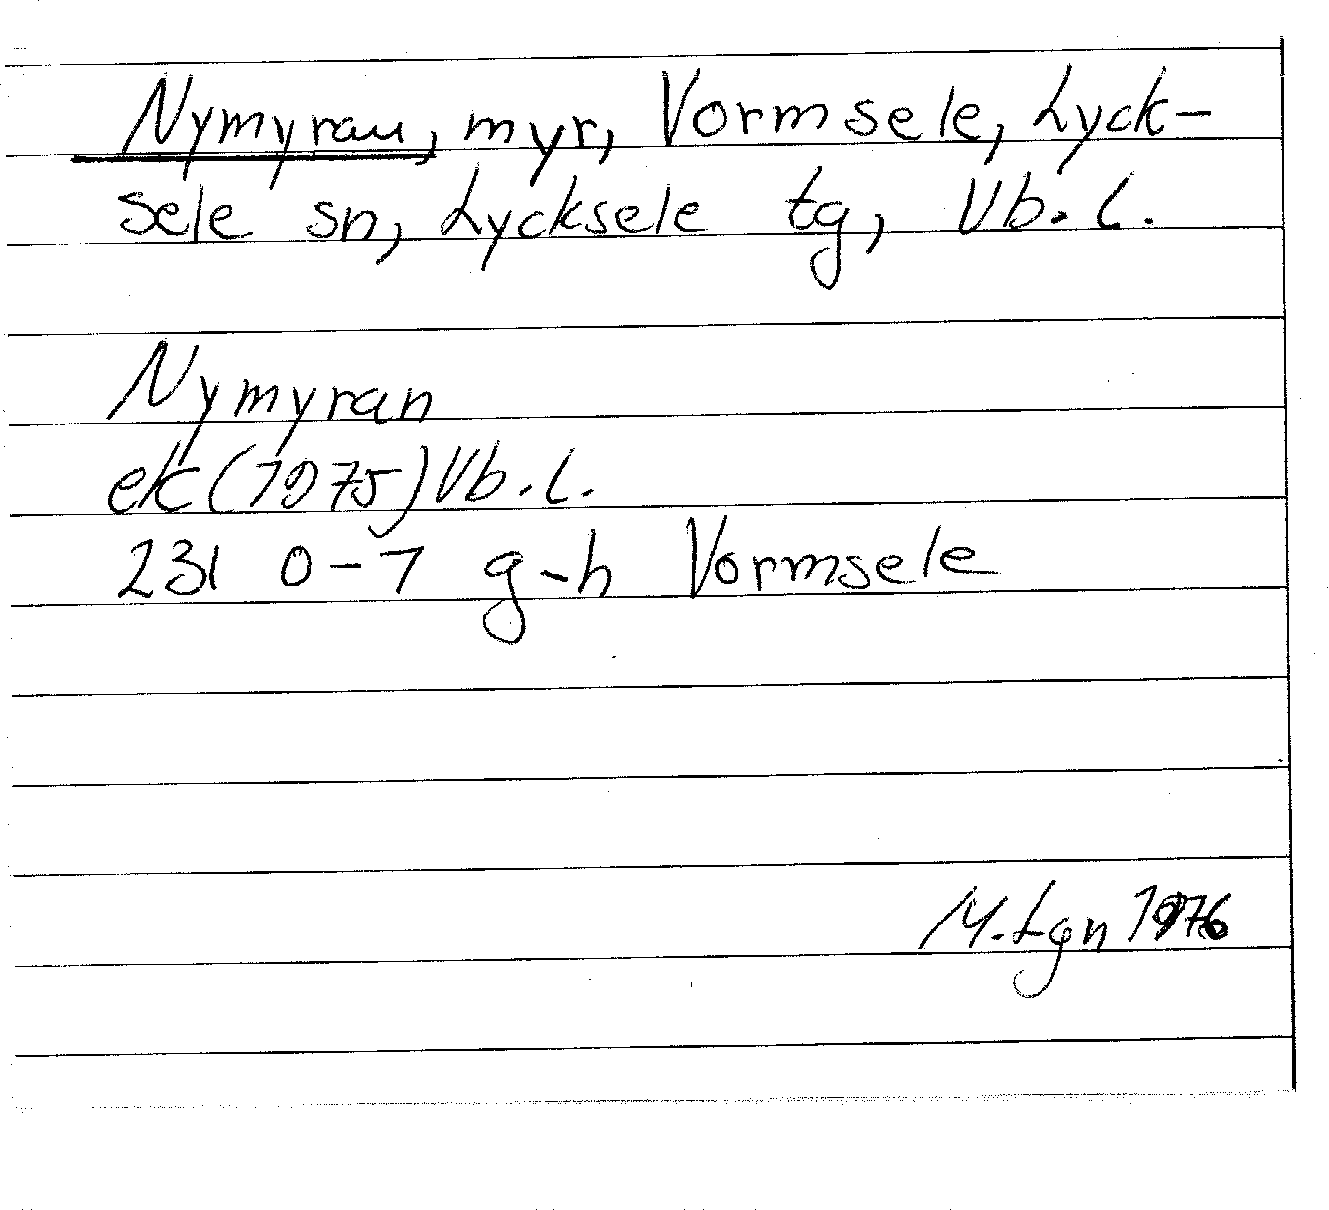 Nymyran, myr, Vormsele, Lyck-
sele sn, Lycksele tg, Vb. l.
Nymyran
ek (1975) Vb. l.
231 0-7 g-h Vormsele
M. Lgn 1976